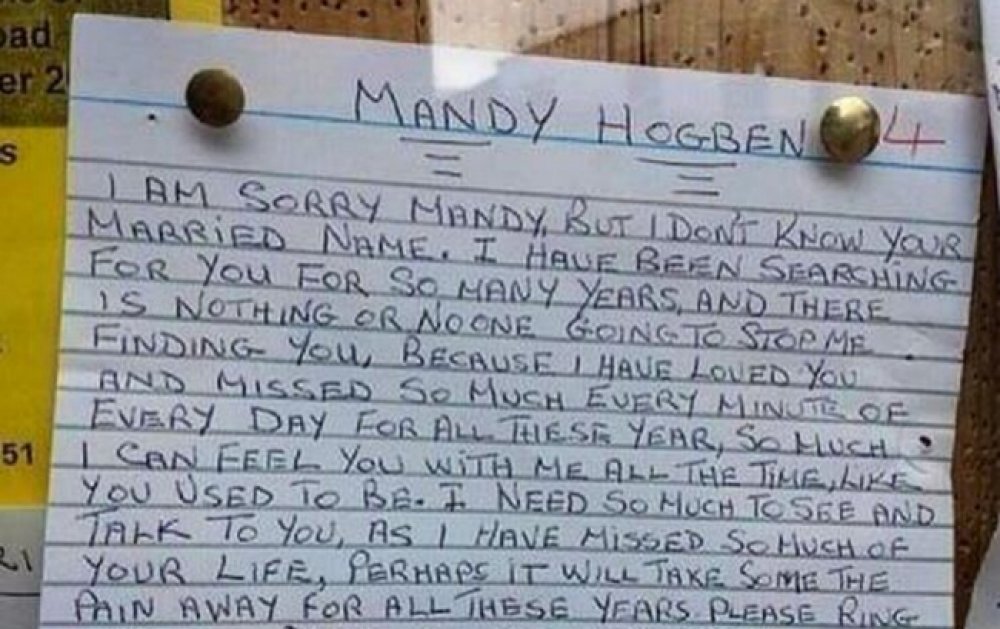 oad
er 2
s
51
21
MANDY HOGBEN 4
I AM SORRY MANDY, BUT I DON'T KNOW YOUR
MARRIED NAME. I HAVE BEEN SEARCHING
FOR YOU FOR SO MANY YEARS, AND THERE
IS NOTHING OR NOONE GOING TO STOP ME
FINDING YOU, BECAUSE I HAVE LOVED YOU
AND MISSED SO MUCH EVERY MINUTE OF
EVERY DAY FOR ALL THESE YEAR, SO MUCH
I CAN FEEL YOU WITH ME ALL THE TIME, LIKE
YOU USED TO BE. I NEED SO MUCH TO SEE AND
TALK TO YOU, AS I HAVE MISSED SO MUCH OF
YOUR LIFE, PERHAPS IT WILL TAKE SOME THE
PAIN AWAY FOR ALL THESE YEARS. PLEASE RING